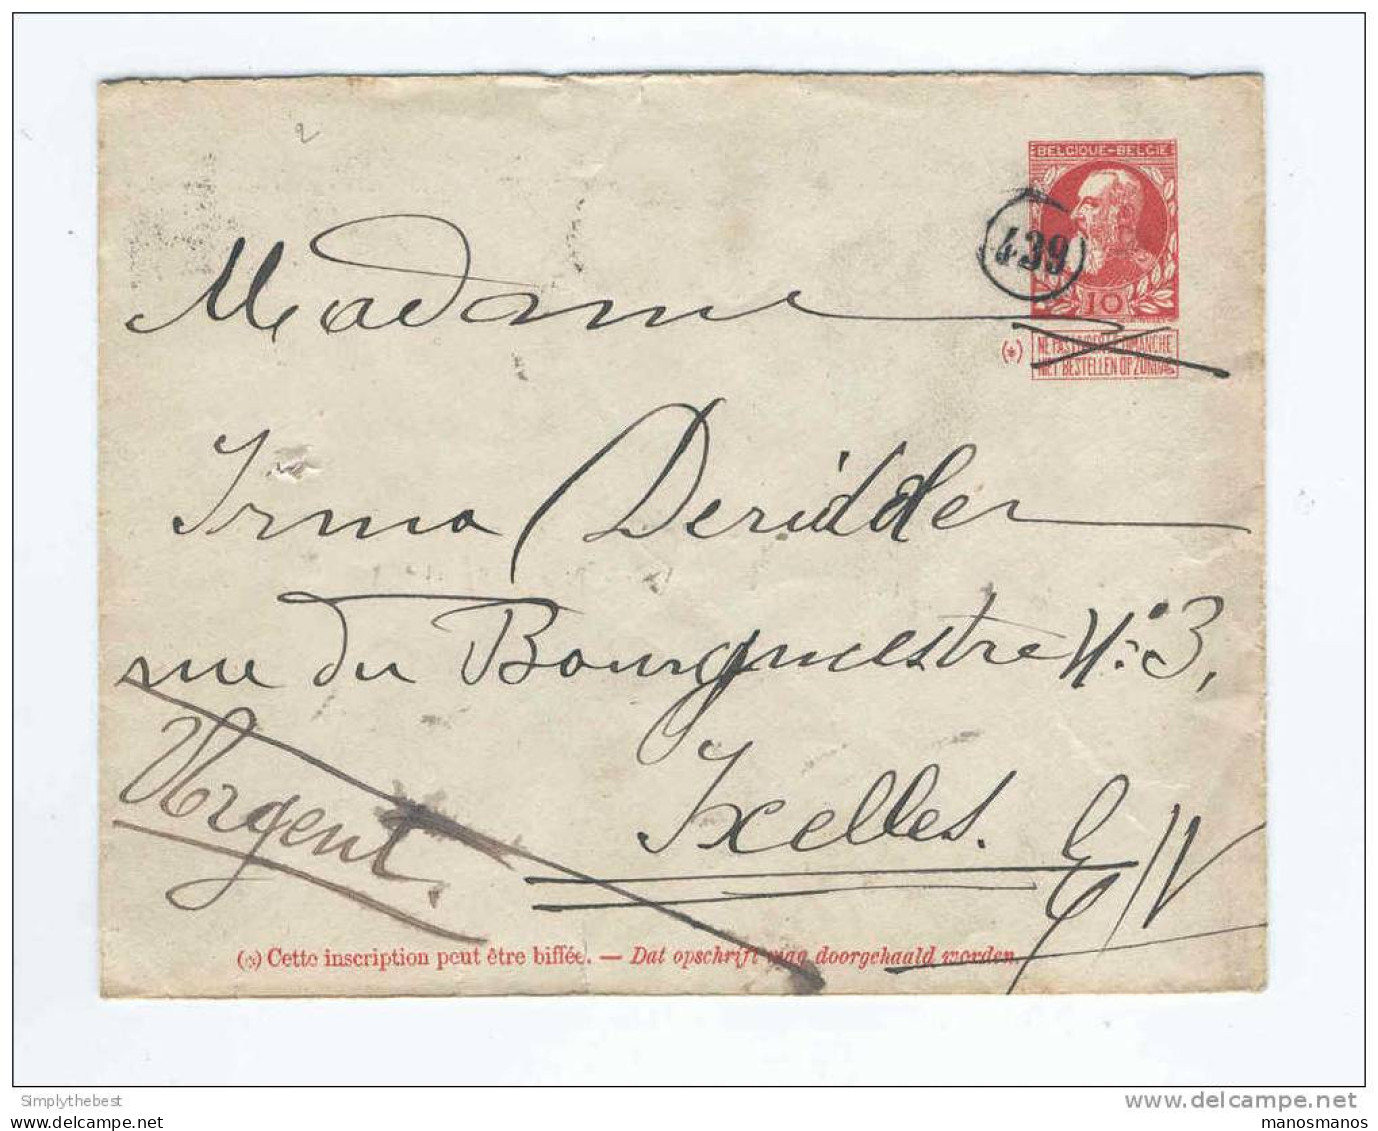 BELGIQUE-BELGIE
439
10
(*) NE PAS LIVRER LE DIMANCHE
NIET BESTELLEN OP ZONDAG
Madame
Irma Deridder
rue du Bourgmestre No: 3,
Urgent.
Ixelles.
E/V
(*) Cette inscription peut être biffée. — Dat opschrift mag doorgehaald worden
Simplythebest
www.delcampe.net
manosmanos